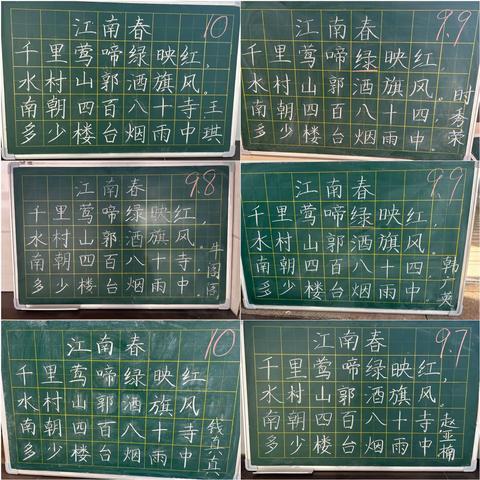 江南春 10
千里莺啼绿映红，
水村山郭酒旗风。
南朝四百八十寺，
多少楼台烟雨中
王琪
江南春 9.9
千里莺啼绿映红，
水村山郭酒旗风。
南朝四百八十四，
多少楼台烟雨中
时秀荣
江南春 9.8
千里莺啼绿映红，
水村山郭酒旗风。
南朝四百八十寺，
多少楼台烟雨中。
牛
江南春 9.9
千里莺啼绿映红，
水村山郭酒旗风。
南朝四百八十四，
多少楼台烟雨中。
韩广英
江南春 10
千里莺啼绿映红
水村山郭酒旗风
南朝四百八十寺
多少楼台烟雨中
钱真真
江南春 9.7
千里莺啼绿映红，
水村山郭酒旗风。
南朝四百八十寺
多少楼台烟雨中
赵亚楠